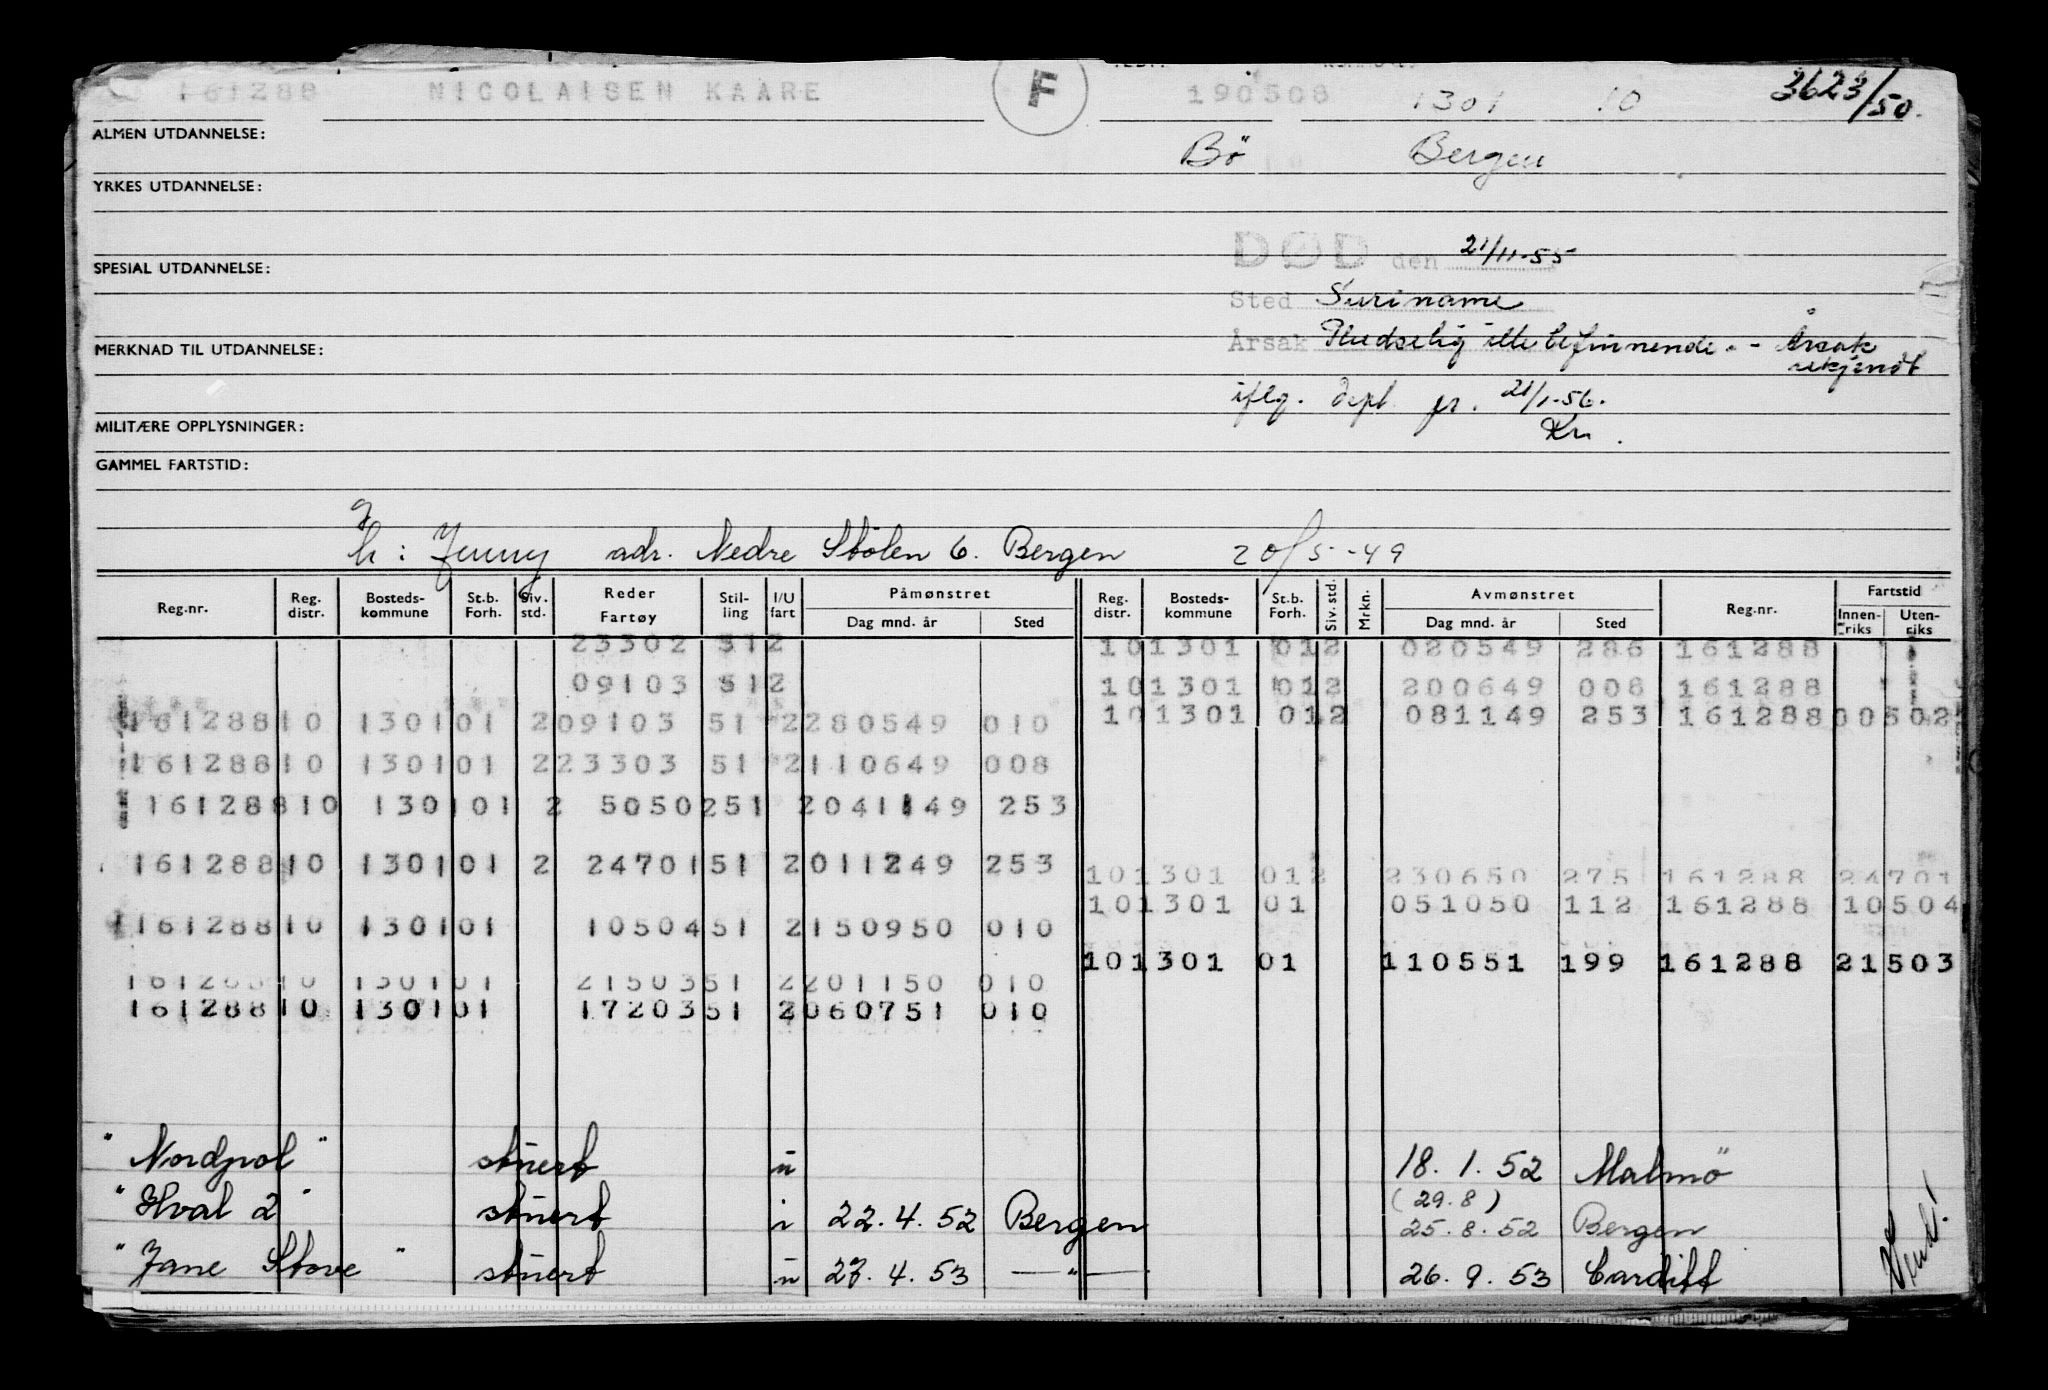 161288 NICOLAISEN KAARE F 190508 1301 10 3623/50.
ALMEN UTDANNELSE: Bö Bergen
YRKES UTDANNELSE:
DØD den 21/11-55
SPESIAL UTDANNELSE:
Sted Suriname
Årsak Pludselig ille befinnende. - Årsak
MERKNAD TIL UTDANNELSE: ukjendt
iflg. dept. 21/1-56.
MILITÆRE OPPLYSNINGER: Kr.
GAMMEL FARTSTID:
g
h: Jenny adr. Nedre Stölen 6. Bergen 20/5-49
Reg.nr. Reg. distr. Bosteds-kommune St.b. Forh. Siv. std. Reder Fartøy Stil-ling I/U fart Påmønstret Dag mnd. år Sted Reg. distr. Bosteds-kommune St.b. Forh. Siv. std. Mrkn. Avmønstret Dag mnd. år Sted Reg.nr. Fartstid Innen-riks Uten-riks
23302 512 101301 012 020549 286 161288
09103 512 101301 012 200649 008 161288
16128810 130101 209103 51 2280549 010 101301 012 081149 253 161288 00502
16128810 130101 223303 51 2110649 008
16128810 130101 2 5050251 2041149 253
16128810 130101 2 2470151 2011249 253 101301 012 230650 275 161288 24701
101301 01 051050 112 161288 10504
16128810 130101 1050451 2150950 010
101301 01 110551 199 161288 21503
16128810 130101 2150351 2201150 010
16128810 130101 1720351 2060751 010
"Nordpol" stuert u 18.1.52 Malmö
"Hval 2" stuert i 22.4.52 Bergen (29.8) 25.8.52 Bergen
"Jane Stove" stuert u 27.4.53 —"— 26.9.53 Cardiff
Vend!